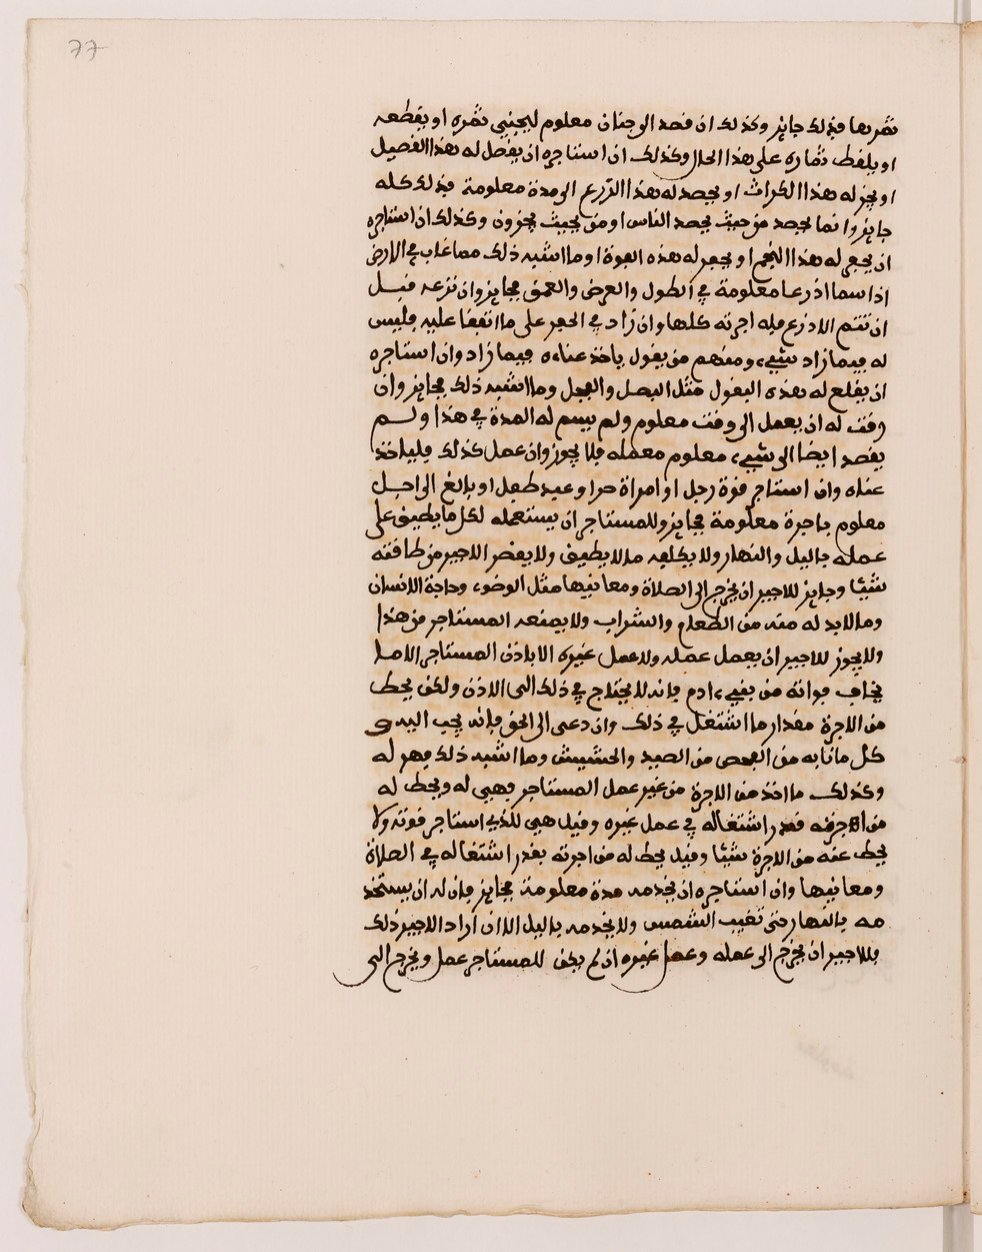 77
ثمرها فذلك جايز وكذلك ان قصد الى جنان معلوم ليجني ثمره او يقطعه
او يلقط ثماره على هذا الحال وكذلك ان استاجره ان يفصل له هذا الفصيل
او يجز له هذا الكراث او يحصد له هذا الزرع الى مدة معلومة فذلك كله
جايز وانما يحصد من حيث يحصد الناس او من حيث يجزون وكذلك ان استاجره
ان يحفر له هذا او يحفر له هذه الفوة او ما اشبه ذلك مما غاب في الارض
اذا سما اذرعا معلومة في الطول والعرض والعمق فجايز وان نزعه قبل
ان تتم الاذرع فله اجرته كلها وان زاد في الحفر على ما اتفقا عليه فليس
له فيما زاد شيء ومنهم من يقول ياخذ عناءه فيما زاد وان استاجره
ان يقلع له هذه البقول مثل البصل والفجل وما اشبه ذلك فجايز وان
وقت له ان يعمل الى وقت معلوم ولم يسم له المدة في هذا ولم
يقصد ايضا الى شيء معلوم معمله فلا يجوز وان عمل كذلك فلياخذ
عناه وان استاجر قوة رجل او امراة حرا وعبد طفل او بالغ الى اجل
معلوم باجرة معلومة فجايز وللمستاجر ان يستعمله لكل ما يطيق على
عمله باليل والنهار ولا يكلفه ما لا يطيق ولا يقصر الاجير من طاقته
شيئا وجايز للاجير ان يخرج الى الصلاة ومعانيها مثل الوضوء وحاجة الانسان
وما لا بد له منه من الطعام والشراب ولا يمنعه المستاجر من هذا
ولا يجوز للاجير ان يعمل عمله ولا عمل غيره الا باذن المستاجر الا ما
يخاف فواته من بني ادم فانه لا يحتاج في ذلك الى الاذن ولكن يحط
من الاجرة مقدار ما اشتغل في ذلك وان دعى الى الحق فانه يجب اليه و
كل ما نابه من الفحص من الصيد والحشيش وما اشبه ذلك فهو له
وكذلك ما اخذ من الاجرة من غير عمل المستاجر فهي له ويحط له
من اجرته قدر اشتغاله في عمل غيره وقيل هي للذي استاجر قوته ولا
يحط عنه من الاجرة شيئا وقيل يحط له من اجرته بقدر اشتغاله في الصلاة
ومعانيها وان استاجره ان يخدمه مدة معلومة فجايز فان له ان يستخد
مه بالنهار حتى تغيب الشمس ولا يخدمه باليل الا ان اراد الاجير ذلك
فللاجير ان يخرج الى عمله وعمل غيره ان لم يكن للمستاجر عمل ويخرج الى